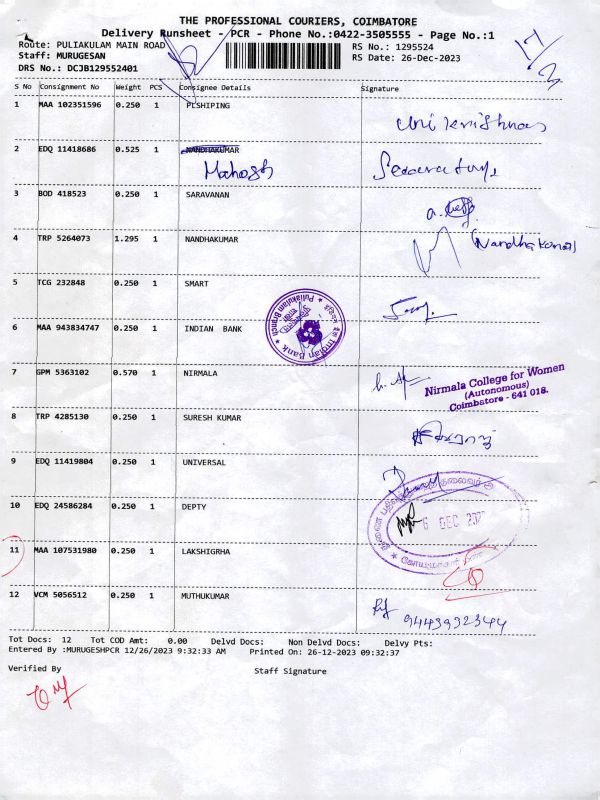 THE PROFESSIONAL COURIERS, COIMBATORE
Delivery Runsheet - PCR - Phone No.:0422-3505555 - Page No.:1
Route: PULIAKULAM MAIN ROAD
RS No.: 1295524
Staff: MURUGESAN
RS Date: 26-Dec-2023
DRS No.: DCJB129552401
S No Consignment No Weight PCS Consignee Details Signature
1 MAA 102351596 0.250 1 PLSHIPING
2 EDQ 11418686 0.525 1 NANDHAKUMAR
3 BOD 418523 0.250 1 SARAVANAN
4 TRP 5264073 1.295 1 NANDHAKUMAR
5 TCG 232848 0.250 1 SMART
6 MAA 943834747 0.250 1 INDIAN BANK
Indian Bank
Puliakulam Branch
7 GPM 5363102 0.570 1 NIRMALA
Nirmala College for Women
(Autonomous)
Coimbatore - 641 018.
8 TRP 4285130 0.250 1 SURESH KUMAR
9 EDQ 11419804 0.250 1 UNIVERSAL
10 EDQ 24586284 0.250 1 DEPTY
6 DEC
11 MAA 107531980 0.250 1 LAKSHIGRHA
12 VCM 5056512 0.250 1 MUTHUKUMAR
9443932344
Tot Docs: 12 Tot COD Amt: 0.00 Delvd Docs: Non Delvd Docs: Delvy Pts:
Entered By :MURUGESHPCR 12/26/2023 9:32:33 AM Printed On: 26-12-2023 09:32:37
Verified By Staff Signature